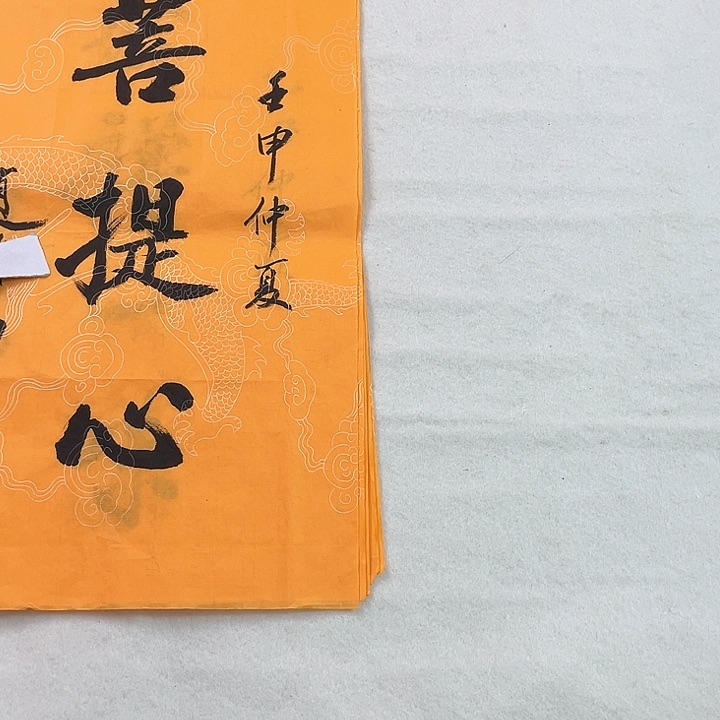 壬申仲夏
菩提心